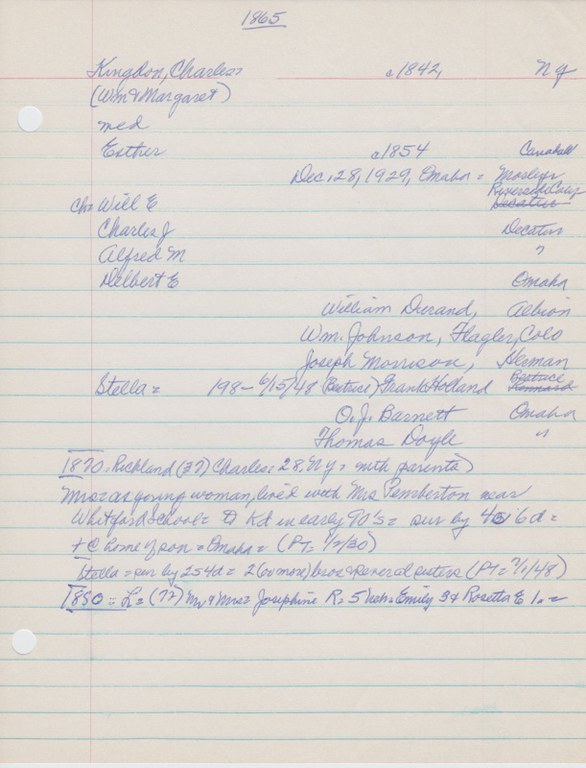 1865
Kingdon, Charles c1842, NY
(Wm & Margaret)
med
Esther c1854
Dec. 28, 1929, Omaha =
Riverside Calif
ch = Will E Decatur
Charles J Decatur
Alfred M "
Delbert E Omaha
William Durand, Albion
Wm. Johnson, Flagler, Colo
Joseph Morrison, Herman
Stella = 198- 6/15/48 (Beatrice) Frank Holland
O. J. Barnett Omaha
Thomas Doyle "
1870. Richland (37) Charles = 28, NY = with parents)
Mrs = as young woman, lived with Mrs Pemberton near
Whitford School = to Kd in early 90's = sur by 4s 6d =
+ @ home of son = Omaha = (PT = 1/2/30)
Stella = sur by 2s 4d = 2 (or more) bros & several sisters (PT = 7/1/48)
1880 = L = (72) Mr & Mrs = Josephine R = 5 Neb = Emily 3 & Rosetta E 1. =